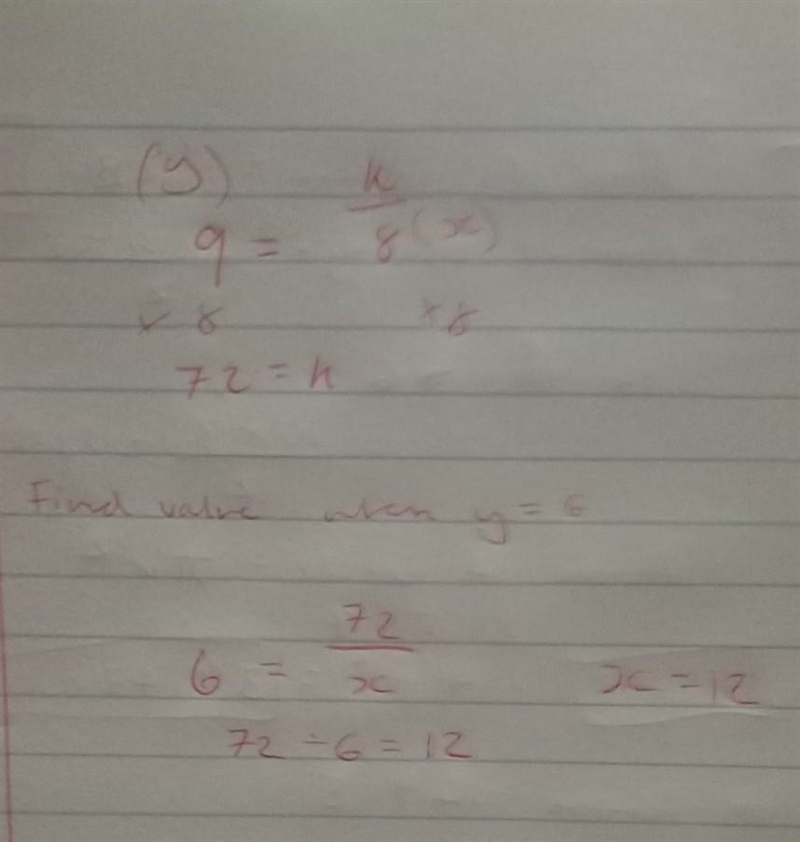 (y) k
9 = 8 (x)
× 8 × 8
72 = k
Find value when y = 6
72
6 = x x = 12
72 ÷ 6 = 12